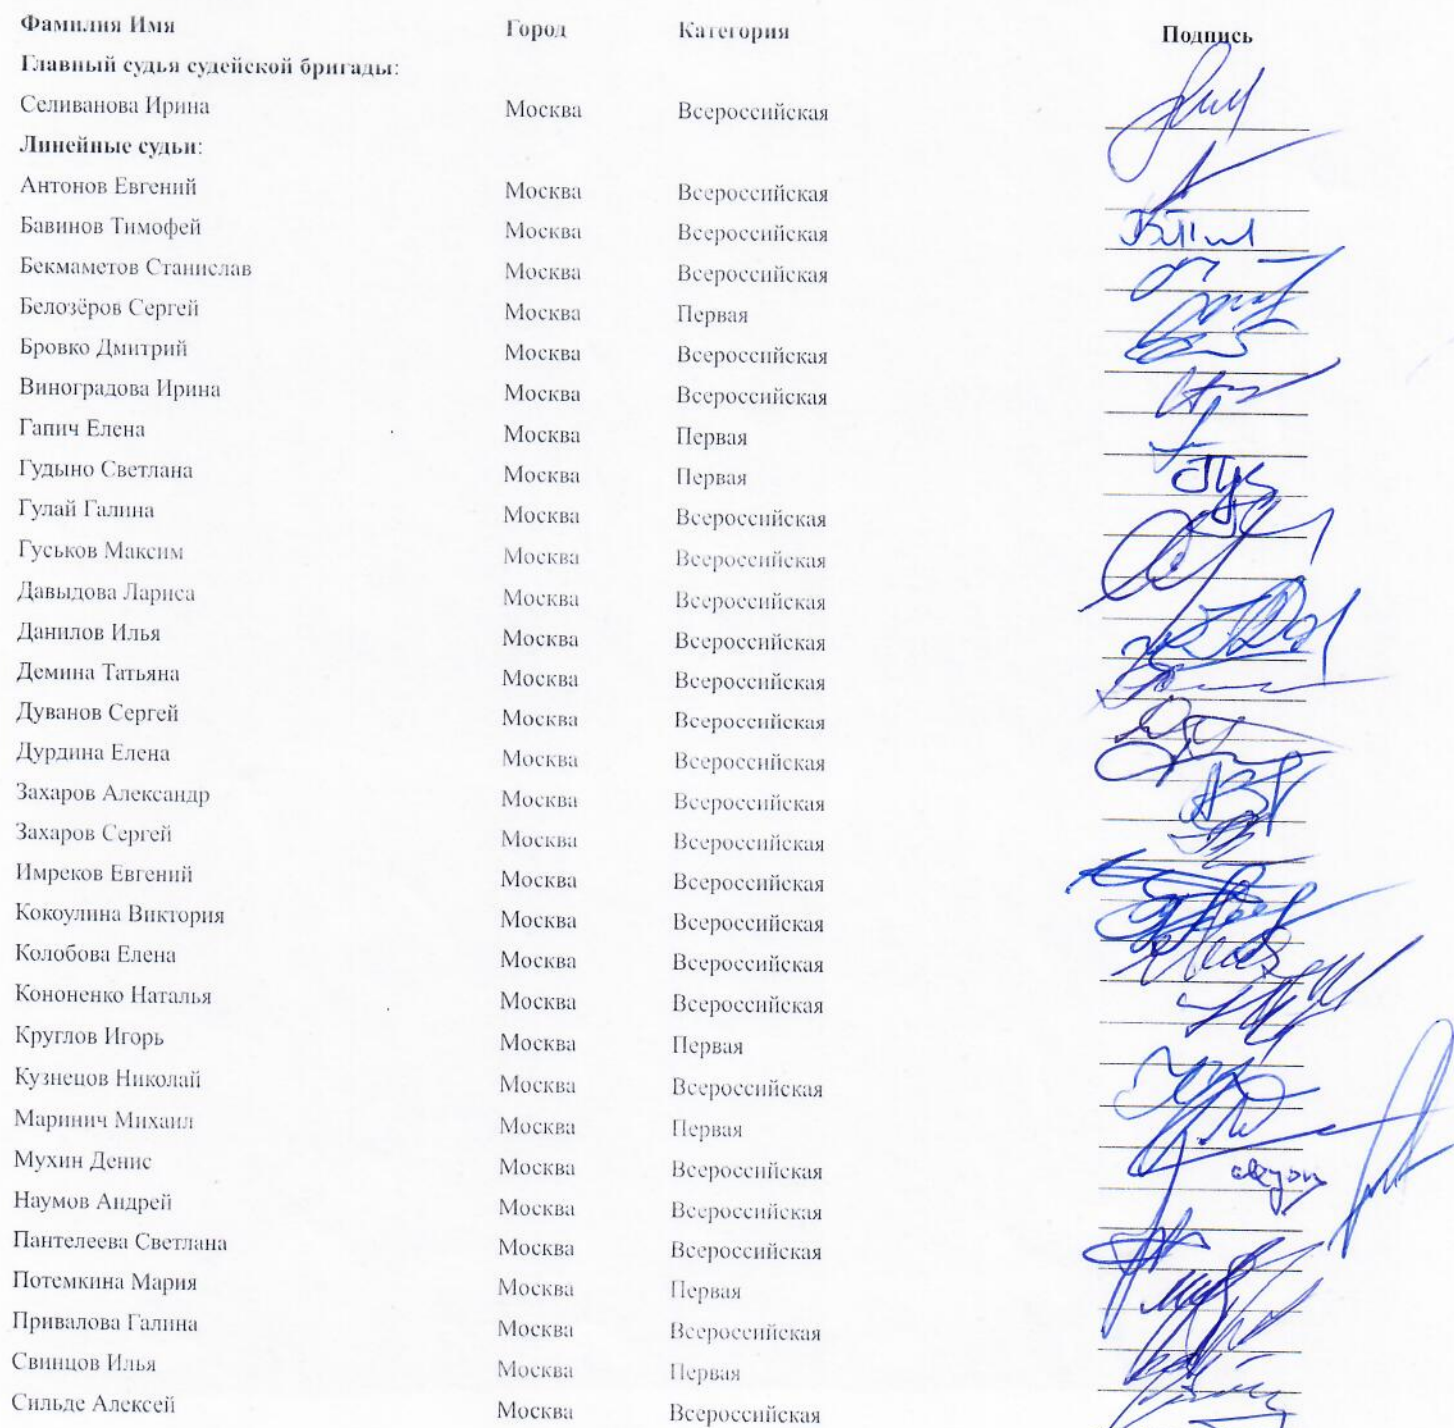 Фамилия Имя Город Категория Подпись
Главный судья судейской бригады:
Селиванова Ирина Москва Всероссийская
Линейные судьи:
Антонов Евгений Москва Всероссийская
Бавинов Тимофей Москва Всероссийская
Бекмаметов Станислав Москва Всероссийская
Белозёров Сергей Москва Первая
Бровко Дмитрий Москва Всероссийская
Виноградова Ирина Москва Всероссийская
Гапич Елена Москва Первая
Гудыно Светлана Москва Первая
Гулай Галина Москва Всероссийская
Гуськов Максим Москва Всероссийская
Давыдова Лариса Москва Всероссийская
Данилов Илья Москва Всероссийская
Демина Татьяна Москва Всероссийская
Дуванов Сергей Москва Всероссийская
Дурдина Елена Москва Всероссийская
Захаров Александр Москва Всероссийская
Захаров Сергей Москва Всероссийская
Имреков Евгений Москва Всероссийская
Кокоулина Виктория Москва Всероссийская
Колобова Елена Москва Всероссийская
Кононенко Наталья Москва Всероссийская
Круглов Игорь Москва Первая
Кузнецов Николай Москва Всероссийская
Маринич Михаил Москва Первая
Мухин Денис Москва Всероссийская
Наумов Андрей Москва Всероссийская
Пантелеева Светлана Москва Всероссийская
Потемкина Мария Москва Первая
Привалова Галина Москва Всероссийская
Свинцов Илья Москва Первая
Сильде Алексей Москва Всероссийская